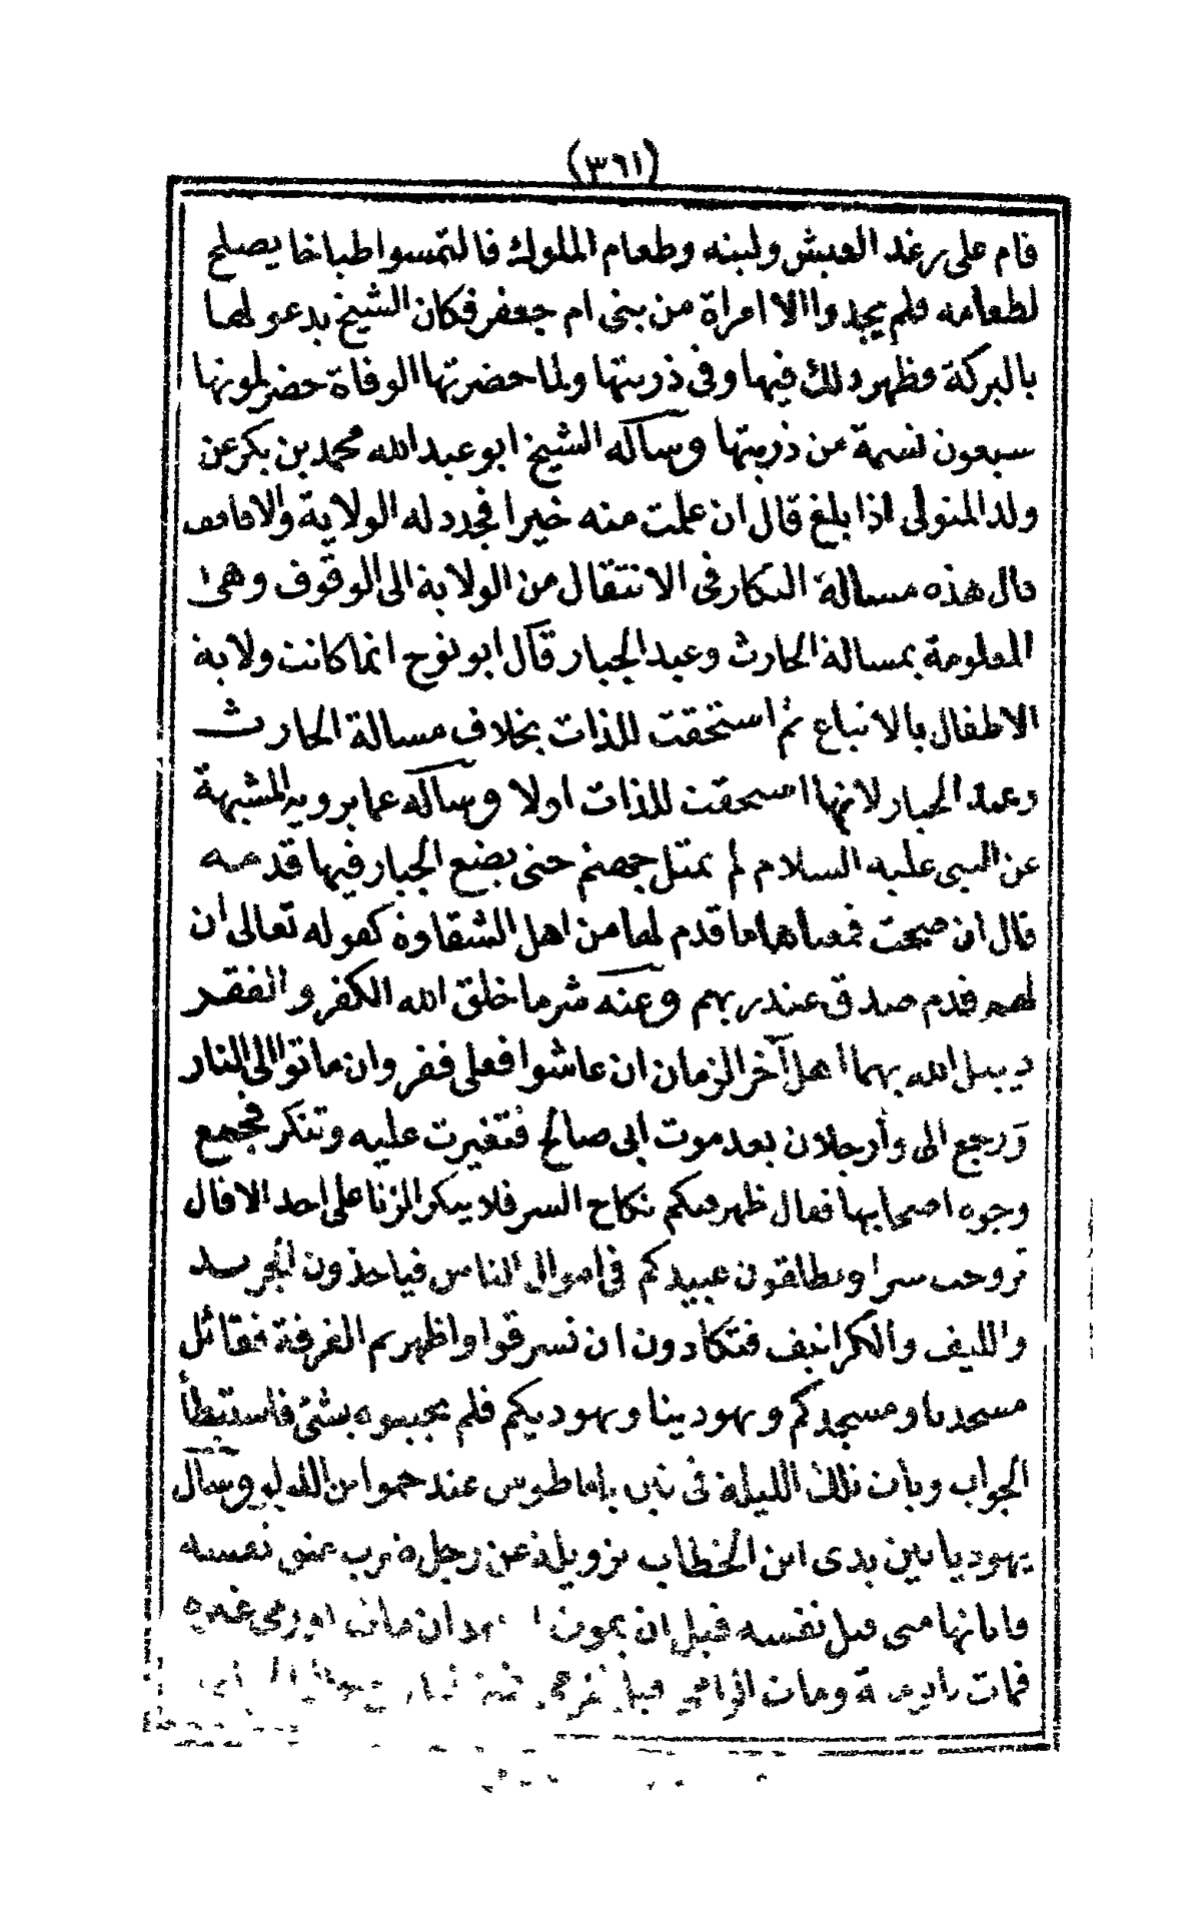 (٣٦١)
قام على رغد العيش ولينه وطعام الملوك فالتمسوا طباخا يصلح
لطعامه فلم يجدوا الا امراة من بنى ام جعفر فكان الشيخ يدعو لها
بالبركة فظهر ذلك فيها وفى ذريتها ولما حضرتها الوفاة حضر لموتها
سبعون نسمة من ذريتها وسأله الشيخ ابو عبد الله محمد بن بكر عن
ولد المتولى اذا بلغ قال ان علمت منه خيرا فجدد له الولاية والا فاقف
قال هذه مسالة البكار فى الانتقال من الولاية الى الوقوف وهى
المعلومة بمسالة الحارث وعبد الجبار قال ابو نوح انما كانت ولاية
الاطفال بالاتباع ثم استحقت للذات بخلاف مسالة الحارث
وعبد الجبار لانها استحقت للذات اولا وسأله عما يرويه المشبهة
عن النبى عليه السلام لم تمتل جهنم حتى يضع الجبار فيها قدمه
قال ان صحت فمعناها ما قدم لها من اهل الشقاوة كقوله تعالى ان
لهم قدم صدق عند ربهم وعنه شر ما خلق الله الكفر والفقر
يبتل الله بهما اهل آخر الزمان ان عاشوا فعلى فقر وان ماتوا الى النار
ورجع الى وأرجلان بعد موت ابى صالح فتغيرت عليه وتنكر فجمع
وجوه اصحابها فقال ظهر فيكم نكاح السر فلا ينكر الزنا على احد الا قال
تزوجت سرا وتطلقون عبيدكم فى اموال الناس فياخذون الجريد
والليف والكرانيف فتكادون ان تسرقوا واظهرتم الفرقة فقائل
مسجدنا ومسجدكم ويهودينا ويهوديكم فلم يجيبوه بشئ فاستبطأ
الجواب وبات تلك الليلة فى باماطوس عند حموا بن اللؤلؤ وسأل
يهوديا بين يدى ابن الخطاب بزويلة عن رجل ضرب عنق نفسه
فابانها متى قتل نفسه قبل ان يموت ان مات او رمى غيره
فمات بالرمية ومات الرامى قبل